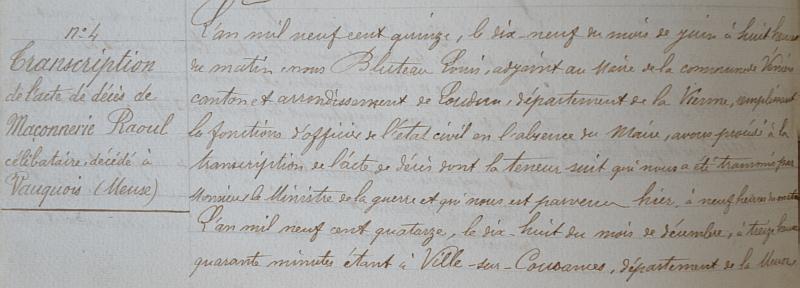 n° 4
Transcription
de l'acte de décès de
Maçonnerie Raoul
célibataire, décédé à
Vauquois (Meuse)
L'an mil neuf cent quinze, le dix-neuf du mois de juin à huit heures
du matin, nous Bluteau Louis, adjoint au Maire de la commune de
canton et arrondissement de Loudun, département de la Vienne, remplissant
les fonctions d'officier de l'état civil en l'absence du Maire, avons procédé à la
transcription de l'acte de décès dont la teneur suit qui nous a été transmis par
Monsieur le Ministre de la guerre et qui nous est parvenu hier, à neuf heures du matin
L'an mil neuf cent quatorze, le dix-huit du mois de décembre, à treize heures
quarante minutes étant à Ville-sur-Cousances, département de la Meuse